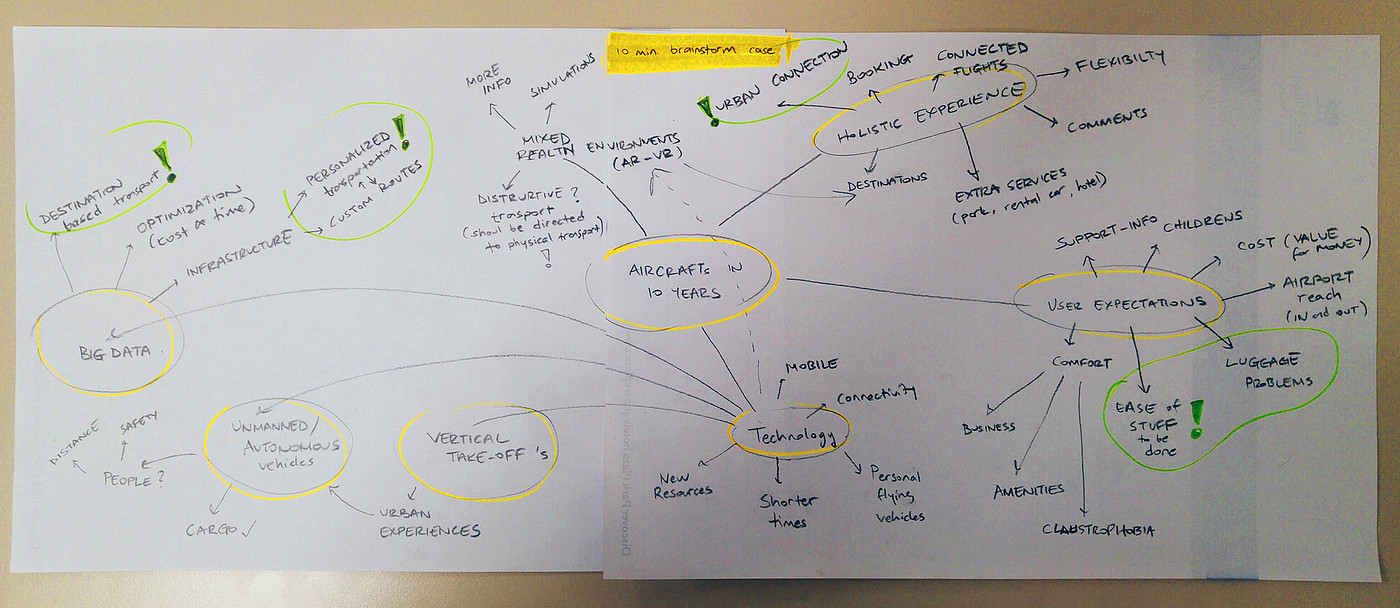 10 min brainstorm case
MORE
INFO
SIMULATIONS
MIXED
REALTY ENVIRONMENTS
(AR-VR)
DISTRUPTIVE?
transport
(shoul be directed
to physical transport)
!
! URBAN CONNECTION
BOOKING
CONNECTED
FLIGHTS
FLEXIBILTY
HOLISTIC EXPERIENCE
COMMENTS
DESTINATIONS
EXTRA SERVICES
(park, rental car, hotel)
DESTINATION
based transport !
OPTIMIZATION
(cost & time)
PERSONALIZED
transportation !
CUSTOM ROUTES
INFRASTRUCTURE
BIG DATA
AIRCRAFTs IN
10 YEARS
SUPPORT-INFO
CHILDRENS
COST (VALUE
for MONEY)
USER EXPECTATIONS
AIRPORT
reach
(IN and OUT)
COMFORT
LUGGAGE
PROBLEMS
EASE of
STUFF
to be
done
!
BUSINESS
AMENITIES
CLAUSTROPHOBIA
MOBILE
Connectivity
Technology
New
Resources
Shorter
times
Personal
flying
vehicles
VERTICAL
TAKE-OFF 's
UNMANNED/
AUTONOMOUS
vehicles
DISTANCE
SAFETY
PEOPLE?
CARGO ✓
URBAN
EXPERIENCES